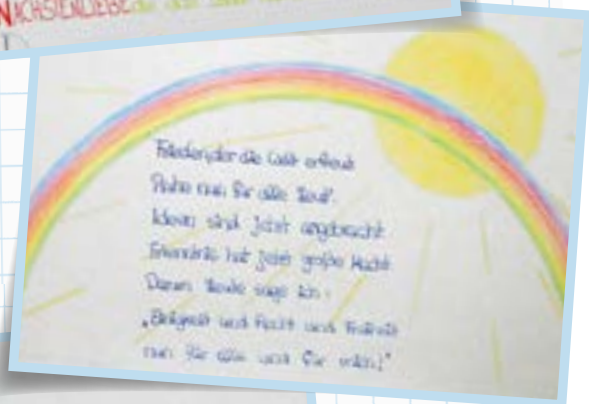 NÄCHSTENLIEBE die
Frieden, der die Welt erfreut
Ruhe nun für alle Leut'.
Ideen sind jetzt angebracht
Erkenntnis hat jetzt große Macht
Darum Leute sage ich:
und Recht und Freiheit
nun für alle und für mich!"